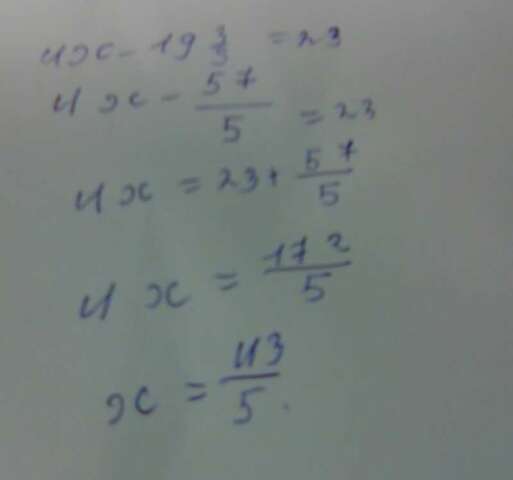 4x - 19 3/5 = 23
4x - 57/5 = 23
4x = 23 + 57/5
4x = 172/5
x = 43/5.